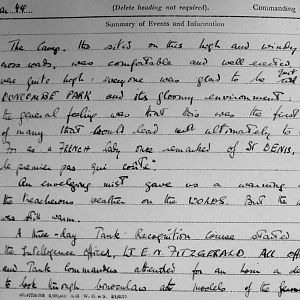 44.
(Delete heading not required). Commanding
Summary of Events and Information
The camp, tho' sited on this high and windy
moss wold, was comfortable and well erected
were quite high: everyone was glad to be just
DUNCOMBE PARK and its gloomy environment:
the general feeling was that this was the first
of many that would lead us ultimately to
For as a FRENCH lady once remarked of ST DENIS,
le premier pas qui coûte".
An enveloping mist gave us a warning
the treacherous weather on the WOLDS. But the
was still warm.
A three-day Tank Recognition Course started
the Intelligence Officer, Lt E.N. FITZGERALD. All
and Tank Commanders attended for an hour a
to look through binoculars at models of the